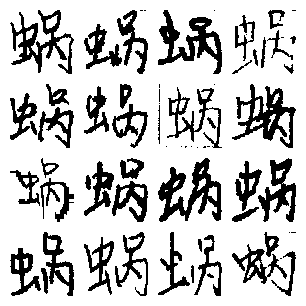 蜗蜗蜗蜗
蜗蜗蜗蜗
蜗蜗蜗蜗
蜗蜗蜗蜗